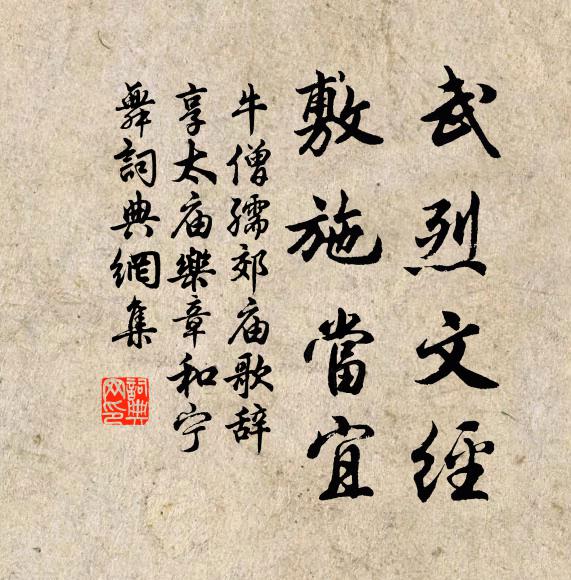 武烈文經
敷施當宜
牛僧孺郊庙歌辞
享太庙樂章和宁
舞詞典網集
詞典
网印